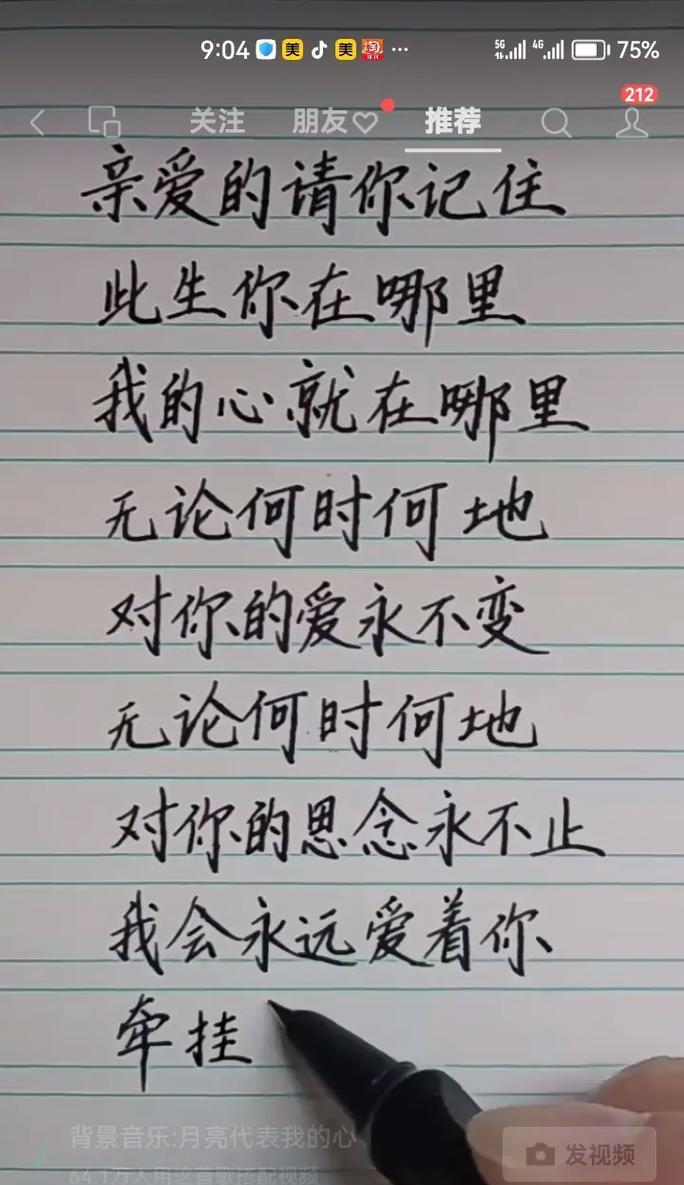 9:04 美 美 淘 ... 5G 4G 75%
212
关注 朋友♡ 推荐
亲爱的请你记住
此生你在哪里
我的心就在哪里
无论何时何地
对你的爱永不变
无论何时何地
对你的思念永不止
我会永远爱着你
牵挂
背景音乐:月亮代表我的心
64.1万人用这首歌搭配视频
发视频